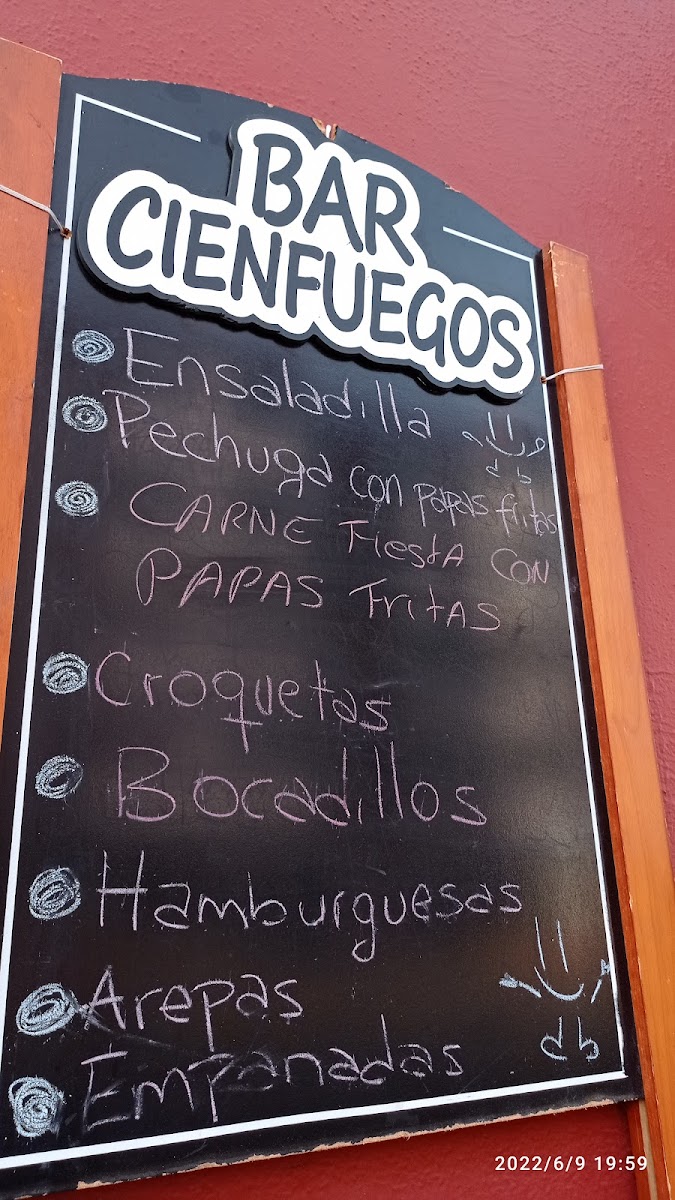 BAR
CIENFUEGOS
Ensaladilla
Pechuga con papas fritas
CARNE FiestA CON
PAPAS FritAS
Croquetas
Bocadillos
Hamburguesas
Arepas
Empanadas
2022/6/9 19:59